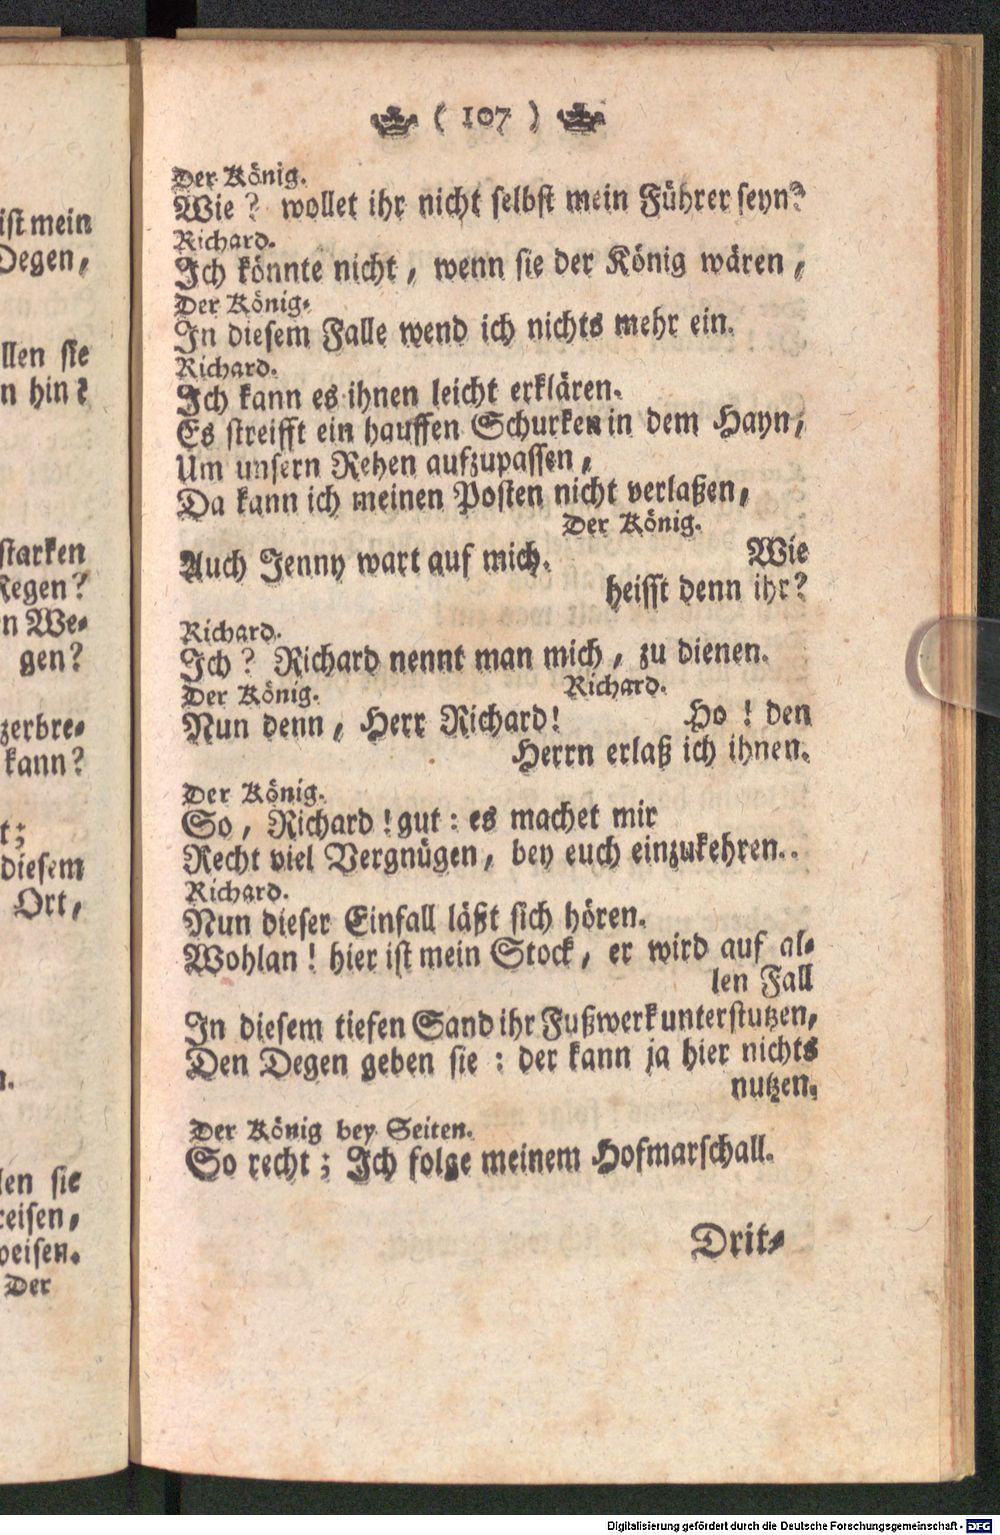 ist mein
Degen,
llen sie
n hin?
starken
Regen?
n We-
gen?
zerbre-
kann?
t;
diesem
Ort,
n.
len sie
reisen,
weisen.
Der
( 107 )
Der König.
Wie? wollet ihr nicht selbst mein Führer seyn?
Richard.
Ich könnte nicht, wenn sie der König wären,
Der König.
In diesem Falle wend ich nichts mehr ein.
Richard.
Ich kann es ihnen leicht erklären.
Es streifft ein hauffen Schurken in dem Hayn,
Um unsern Rehen aufzupassen,
Da kann ich meinen Posten nicht verlaßen,
Der König.
Auch Jenny wart auf mich. Wie
heisst denn ihr?
Richard.
Ich? Richard nennt man mich, zu dienen.
Der König. Richard.
Nun denn, Herr Richard! Ho! den
Herrn erlaß ich ihnen.
Der König.
So, Richard! gut: es machet mir
Recht viel Vergnügen, bey euch einzukehren..
Richard.
Nun dieser Einfall läßt sich hören.
Wohlan! hier ist mein Stock, er wird auf al-
len Fall
In diesem tiefen Sand ihr Fußwerk unterstutzen,
Den Degen geben sie: der kann ja hier nichts
nutzen.
Der König bey Seiten.
So recht; Ich folge meinem Hofmarschall.
Drit-
Digitalisierung gefördert durch die Deutsche Forschungsgemeinschaft - DFG